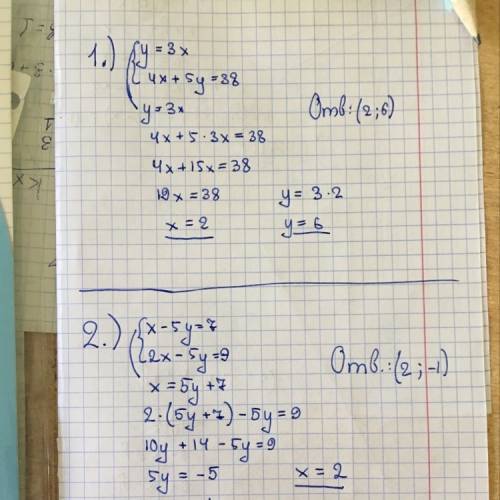 1.) { y = 3x
4x + 5y = 38
y = 3x
Отв: (2; 6)
4x + 5 · 3x = 38
4x + 15x = 38
19x = 38
y = 3 · 2
x = 2
y = 6
2.) { x - 5y = 7
2x - 5y = 9
Отв.: (2; -1)
x = 5y + 7
2 · (5y + 7) - 5y = 9
10y + 14 - 5y = 9
5y = -5
x = 2